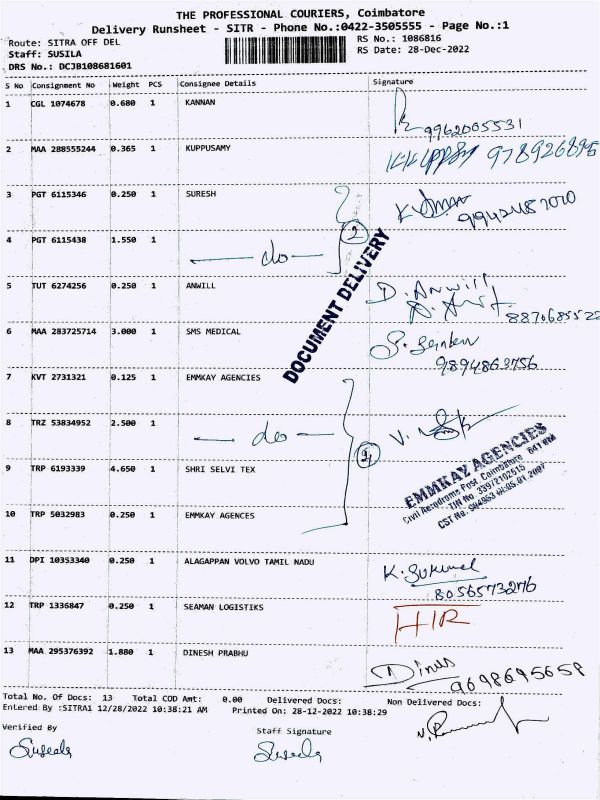 THE PROFESSIONAL COURIERS, Coimbatore
Delivery Runsheet - SITR - Phone No.:0422-3505555 - Page No.:1
Route: SITRA OFF DEL
RS No.: 1086816
Staff: SUSILA
RS Date: 28-Dec-2022
DRS No.: DCJB108681601
S No Consignment No Weight PCS Consignee Details Signature
1 CGL 1074678 0.680 1 KANNAN
9962005531
2 MAA 288555244 0.365 1 KUPPUSAMY
3 PGT 6115346 0.250 1 SURESH
4 PGT 6115438 1.550 1 — do — 2
DOCUMENT DELIVERY
5 TUT 6274256 0.250 1 ANWILL D. Anwill
6 MAA 283725714 3.000 1 SMS MEDICAL
9894863756
7 KVT 2731321 0.125 1 EMMKAY AGENCIES
8 TRZ 53834952 2.500 1 — do — 4
9 TRP 6193339 4.650 1 SHRI SELVI TEX
EMMKAY AGENCIES
Civil Aerodrome Post, Coimbatore 641 014
TIN No. 33972102515
10 TRP 5032983 0.250 1 EMMKAY AGENCES
11 DPI 10353340 0.250 1 ALAGAPPAN VOLVO TAMIL NADU
8056573276
12 TRP 1336847 0.250 1 SEAMAN LOGISTIKS
13 MAA 295376392 1.880 1 DINESH PRABHU Dines
9698695658
Total No. Of Docs: 13 Total COD Amt: 0.00 Delivered Docs: Non Delivered Docs:
Entered By :SITRA1 12/28/2022 10:38:21 AM Printed On: 28-12-2022 10:38:29
Verified By
Staff Signature
Suseala
Suseala